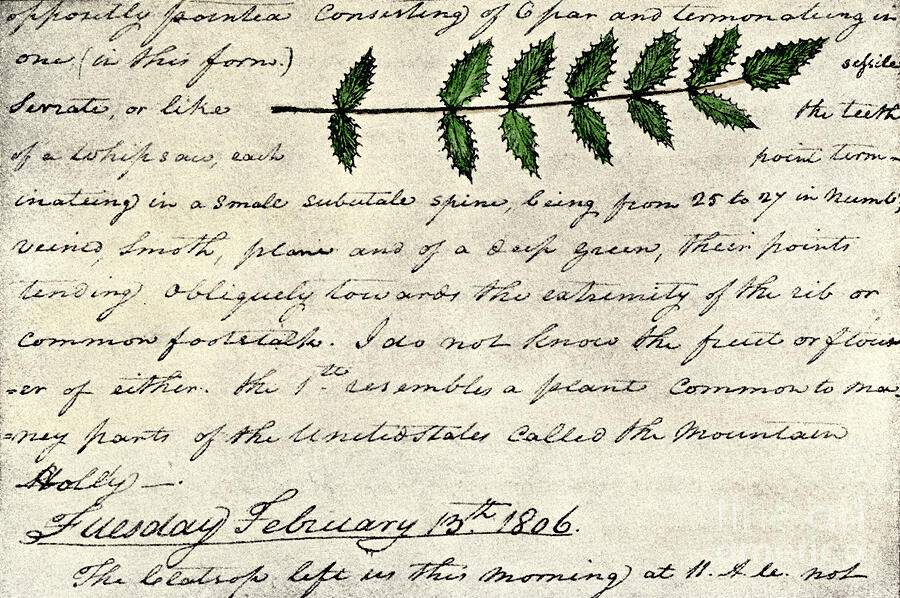 oppositly pointed Consisting of 6 par and termonateing in
one (in this form.) sessile
Serrate, or like the teeth
of a whipsaw, each point term=
inateing in a small subulate spine, being from 25 to 27 in numb;
veined, smoth, plane and of a deep green, their points
tending obliquely towards the extremity of the rib or
common footstalk. I do not know the fruit or flow
=er of either. the 1st resembles a plant common to ma
=ney parts of the United states called the Mountain
Holly —.
Tuesday February 13th 1806.
The Clatsop left us this morning at 11. A.M. not